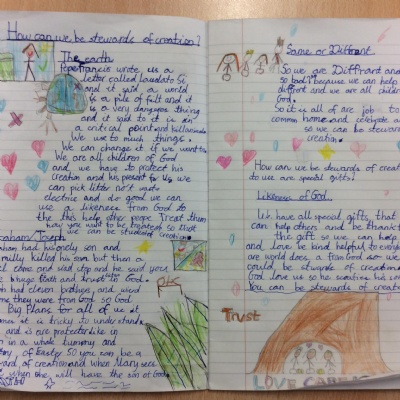 How can we be stewards of creation?
The earth
Pope francis wrote us a
letter called laudato si
and it said a world
is a pile of filt and it
is a very dangerous thing
and it said to it is in
a critical point and
We use to much things.
We can change it if we want to
We are all children of God
and we have to protect his
Creation and his present for us we
can pick litter not waste
electrice and do good we can
use a likeness from God to
the this help other people Treat them
how you want to be treated so that
we can be stewards of creation.
/Joseph
had his only son and
killed his son but then a
came and said stop and he said you
huge faith and trust to God.
had eleven brothers and
they were from God so God
Big Plans for all of us it
it is tricky to understand
and is are protecter like in
in a whole tummy and
of Easter so you can be a
of creation and when Mary
when she will have the son of God
pts
Same or Diffrant
So we are Diffrant and
so bad! because we can help
diffrent and we are all children
God.
So it is all of are job to
common home and celebrate a
so we can be steward
creation.
How can we be stewards of creat
to use are special gifts!
Likeness of God
We have all special gifts, that
can help others and be thankful
this gift so we can help
and love be kind helpful to every
are world does a from God so we
could be stewards of creation
God love us so he wants us his
You can be stewards of creat
Trust
LOVE CARE